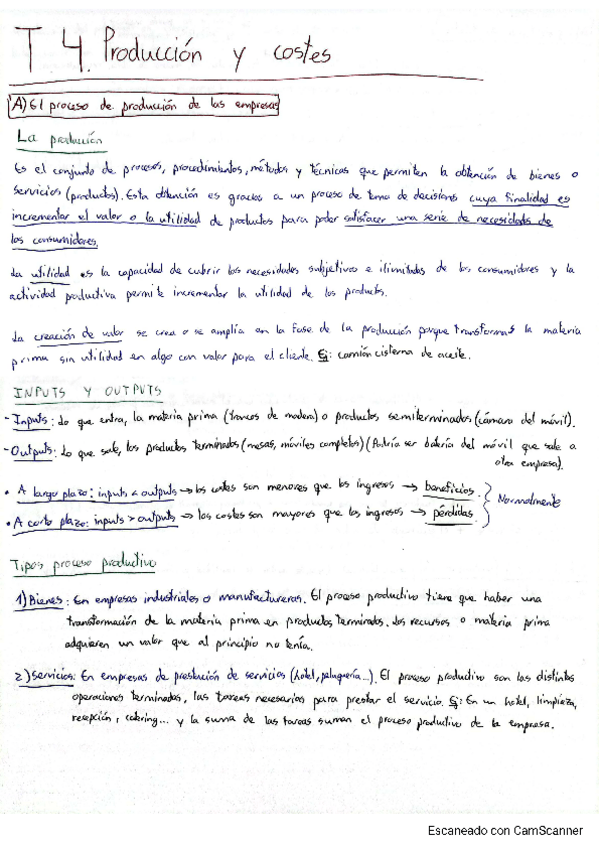 T 4. Producción y costes
A) El proceso de producción de las empresas
La producción
Es el conjunto de procesos, procedimientos, métodos y técnicas que permiten la obtención de bienes o
servicios (productos). Esta obtención es gracias a un proceso de toma de decisions cuya finalidad es
incrementar el valor o la utilidad de productos para poder satisfacer una serie de necesidades de
los consumidores.
La utilidad es la capacidad de cubrir las necesidades subjetivas e ilimitadas de los consumidores y la
actividad productiva permite incrementar la utilidad de los productos.
La creación de valor se crea o se amplía en la fase de la producción porque transformas la materia
prima sin utilidad en algo con valor para el cliente. Ej: camión cisterna de aceite.
INPUTS Y OUTPUTS
- Inputs: Lo que entra, la materia prima (troncos de madera) o productos semiterminados (cámara del móvil).
- Outputs: Lo que sale, los productos terminados (mesas, móviles completos) (Podría ser batería del móvil que sale a
otra empresa).
• A largo plazo: inputs < outputs → los costes son menores que los ingresos → beneficios.
• A corto plazo: inputs > outputs → los costes son mayores que los ingresos → pérdidas.
Normalmente
Tipos proceso productivo
1) Bienes: En empresas industriales o manufactureras. El proceso productivo tiene que haber una
transformación de la materia prima en productos terminados. Los recursos o materia prima
adquieren un valor que al principio no tenía.
2) Servicios: En empresas de prestación de servicios (hotel, peluquería...). El proceso productivo son las distintas
operaciones terminadas, las tareas necesarias para prestar el servicio. Ej: En un hotel, limpieza,
recepción, catering... y la suma de las tareas suman el proceso productivo de la empresa.
Escaneado con CamScanner